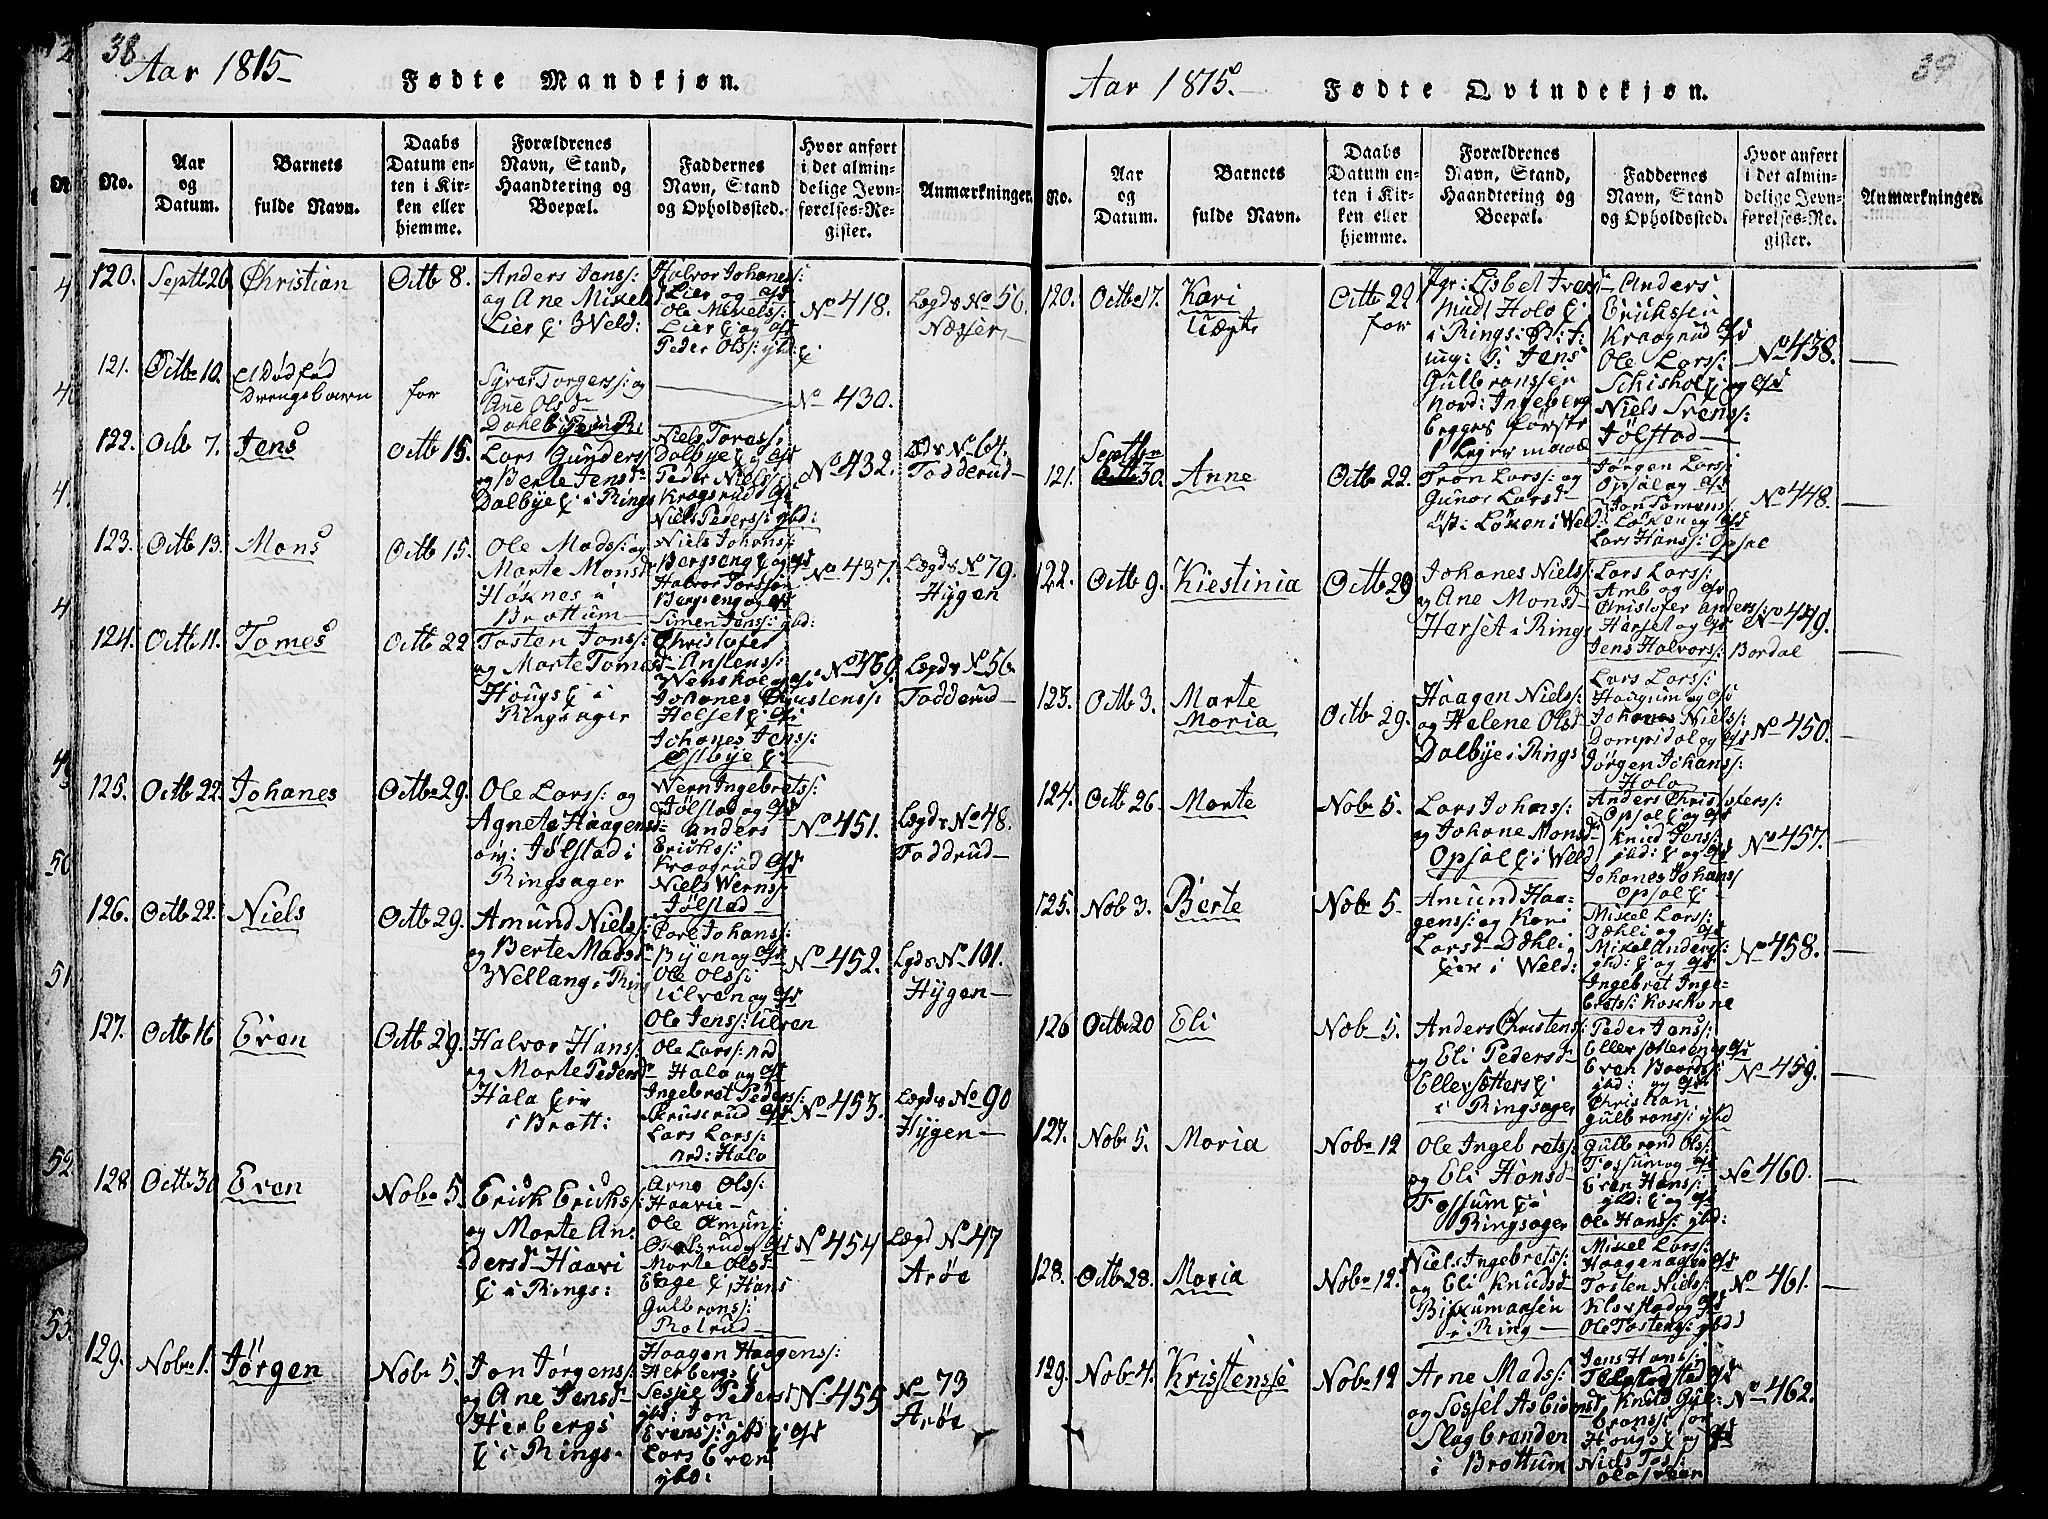 38
Aar 1815
Fødte Mandkjøn.
No.
Aar
og
Datum.
Barnets
fulde Navn.
Daabs
Datum en-
ten i Kir-
ken eller
hjemme.
Forældrenes
Navn, Stand,
Haandtering og
Boepæl.
Faddernes
Navn, Stand
og Opholdssted.
Hvor anført
i det almin-
delige Jevn-
førelses-Re-
gister.
Anmærkninger.
120.
Septb 26
Christian
Octb 8.
Anders Jonss:
og Ane Mikelsd
Lier
Weld:
Halvor Johaness:
Lier og
Ole Mikelss:
Lier
og
Peder Olss: gbd:
No 418.
Legds No 56.
Næsser
121.
Octb 10.
Et Dødfød
Drengebarn
for
Syver Torgerss: og
Ane Olsd
Dahl
No 430.
122.
Octb 7.
Jens
Octb 15.
Lars Gunderss
og Berte Jensd
Dalbye
i Rings
Niels Toress:
Dalbye
Peder Nielss:
Kragsrud
Niels Pederss: gbd:
No 432.
No 64.
Todderud
123.
Octb 13.
Mons
Octb 15.
Ole Madss: og
Marte Monsd
Høsnes i
Brottum
Niels Johans:
Bergseng
Halvor
Bergseng og
Simen Jenss: gbd:
No 437.
Lægds No 79.
Hygen
124.
Octb 11.
Tomes
Octb 22
Tosten Jonss:
og Marte Tomesd
Hougs
i
Ringsager
Christofer
Anstenss:
Wensko
Johanes
Helset
Johanes Jenss:
Østbye
No 460.
Legds No 56
Todderud
125.
Octb 22.
Johanes
Octb 29.
Ole Larss: og
Agnete Haagensd
Jølstad i
Ringsager
Wern Ingebretss:
Jølstad og
Anders
Erickss:
Kraagrud
Niels Wernss:
Jølstad
No 451.
Legds No 48.
Toddrud
126.
Octb 22.
Niels
Octb 29.
Amund Nielss:
og Berte Madsd
Wellang i Ring
Johanss:
Byen og
Ole Olss:
Ulven og
Ole Jenss: Ulven
No 452.
Lgds No 101.
Hygen
127.
Octb 16
Even
Octb 29.
Halvor Hans:
og Marte Pedersd
Hala
i Brott:
Ole Larss: nrd
Halo og
Ingebret Pederss:
Gruserud
Lars Larss:
nrd: Halo
No 453.
Legds No 90
Hygen
128
Octb 30
Even
Nobr 5.
Erick Erickss:
og Marte An-
dersd Haavi
i Rings:
Arne Olss:
Haavie
Ole Amuns:
Marte Olsd
Enge
Hans
Gulbranss:
Rolrud
No 454
Lægd No 47
Arøe
129.
Nobr 1.
Jørgen
Nobr 5.
Jon Jørgenss:
og Ane Jensd
Herbergs
i Rings
Haagen Haagenss:
Herbergs
Sessel Pedersd
gbd: Jon
Evenss: gbd
Lars Even
gbd:
No 455
No 73
Arøe
39
Aar 1815.
Fødte Qvindekjøn.
No.
Aar
og
Datum.
Barnets
fulde Navn.
Daabs
Datum en-
ten i Kir-
ken eller
hjemme.
Forældrenes
Navn, Stand,
Haandtering og
Boepæl.
Faddernes
Navn, Stand
og Opholdssted.
Hvor anført
i det almin-
delige Jevn-
førelses-Re-
gister.
Anmærkninger.
120.
Octb 17.
Kari
Uægte
Octb 22
for
Lisbet Ivers
Midt Holo
i Rings:
Jens
Gulbranssen
Nord: Ingeberg
Begges første
Leiermaal
Anders
Erikssen
Kraagrud
Ole Larss:
Schisholt
og
Niels Svenss:
Jølstad
No 438.
121.
Septbr
30.
Anne
Octb 22.
Tron Larss: og
Gunor Larsd
Øst: Løken i Weld:
Jørgen Larss:
Opsal og
Jon Tomæss:
Løken og
Lars Hanss: Opsal
No 448.
122.
Octb 9.
Kiestinia
Octb 29
Johanes Nielss:
og Ane Monsd
Herset i Rings
Lars Larss:
Amb og
Christofer Anderss:
Herset og
Jens Halvors: Bordal
No 449.
123.
Octb 3.
Marte
Maria
Octb 29.
Haagen Nielss:
og Helene Olsd
Dalbye i Rings
Lars Larss:
Haagum og
Johanes Nielss:
Dompsdal og
Jørgen Johans:
Holo
No 450.
124.
Octb 26.
Marte
Nobr 5.
Lars Johans:
og Johane Monsd
Opsal
i Weld
Anders Christofers:
Opsal
og
Knud Jens:
gbd:
og
Johanes Johans
Opsal
No 457.
125.
Nob 3.
Berte
Nobr 5.
Amund Haa-
genss: og Kari
Larsd Dæhli
i Weld:
Mikel Larss:
Dæhli og
Mikel Anderss:
gbd:
og
Ingebret Inge-
bretss: Koxkone
No 458.
126
Octb 20
Eli
Nobr 5.
Anders Christens:
og Eli Pedersd
Ellevsætters
i Ringsager
Peder Jenss:
Ellevsæter og
Even Baards:
gbd: og
Christian
Gulbrans: gbd
No 459.
127.
Nobr 5.
Maria
Nobr 12
Ole Ingebretss:
og Eli Hansd
Fossum
i
Ringsager
Gulbrand Olss:
Fossum og
Even Hanss:
gbd:
og
Ole Hanss: gbd:
No 460.
128.
Octb 28.
Maria
Nobr 12.
Niels Ingebretss:
og Eli Knudsd
i Ring
Mikel Larss:
Haagenager
Tosten Nielss:
Klavstad og
Ole Tostens: gbd
No 461.
129.
Nob 4.
Kristensse
Nobr 12
Arne Madss:
og Sossel Asbiørnsd
Slagbrenden
i Brottum
Jens Hans:
Knud Gul-
branss: for
Hougs
og
Niels Tos:
No 462.